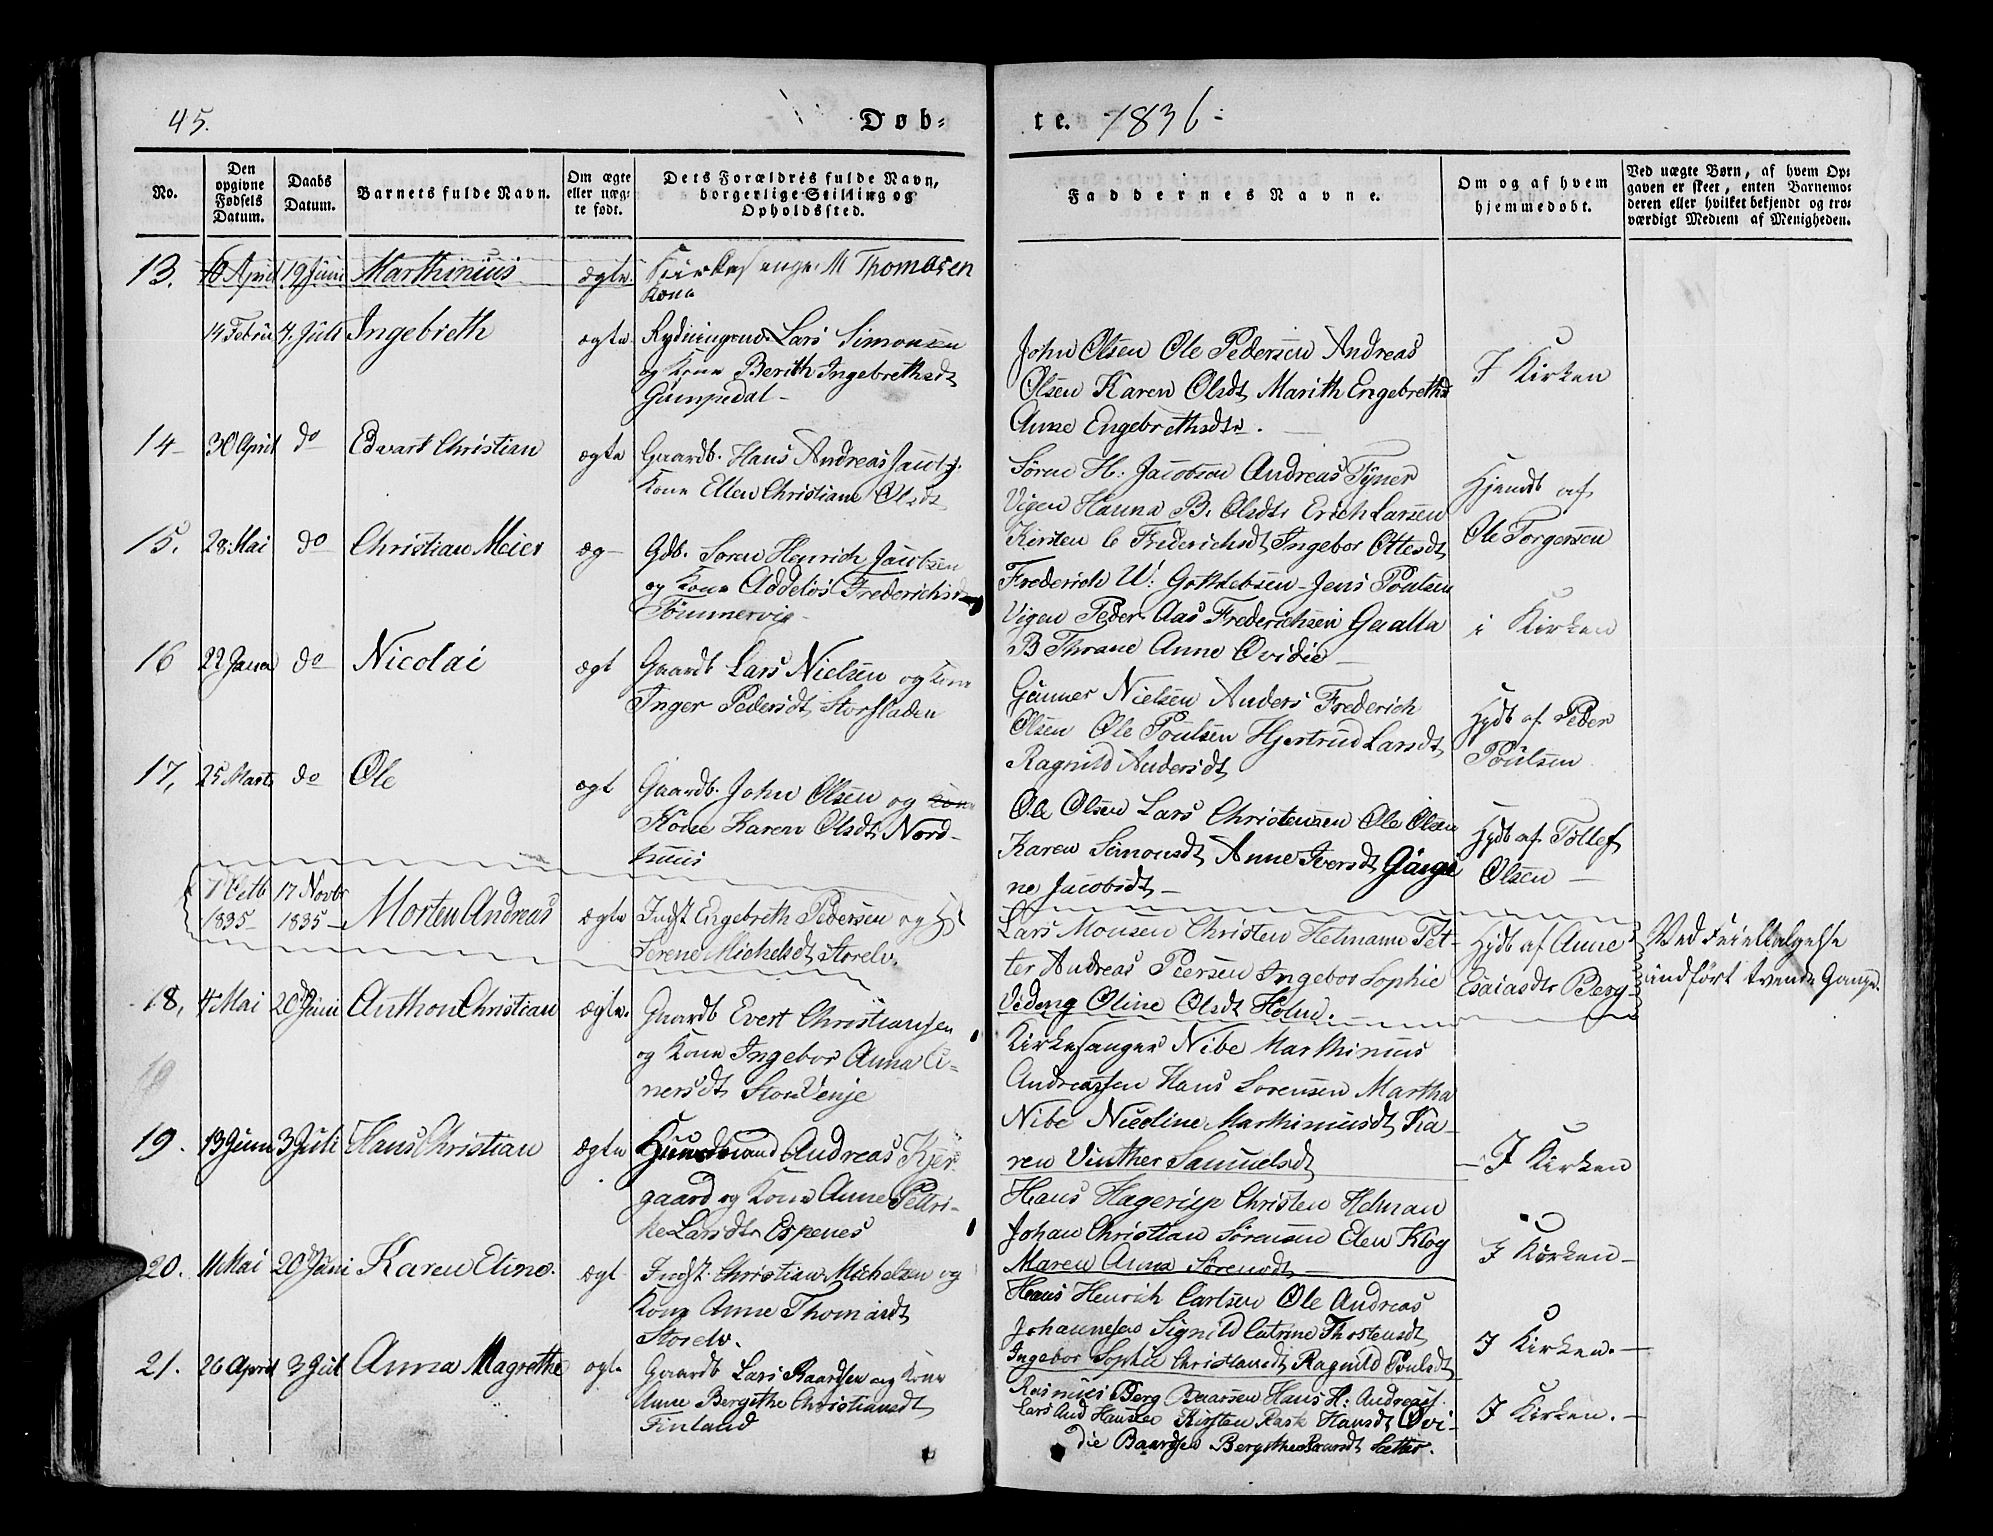 45.
Døb-
te. 1836
No.
Den
opgivne
Fødsels
Datum.
Daabs
Datum.
Barnets fulde Navn.
Om ægte
eller uæg-
te født.
Dets Forældres fulde Navn,
borgerlige Stilling og
Opholdssted.
Faddernes Navne.
Om og af hvem
hjemmedøbt.
Ved uægte Børn, af hvem Op-
gaven er skeet, enten Barnemo-
deren eller hvilket bekjendt og tro-
værdigt Medlem af Menigheden.
13. April 19 Juni Marthinius ægte. Kirkesanger M Thomasen
Kone
14 Febru 4. Juli Ingebreth ægte Lars Simonsen
og Kone Berith Ingebrethsdt
Gumpedal
John Olsen Ole Pedersen Andreas
Olsen Karen Olsdt Marith Engebrethsd
Anne Engebrethsdtr.
I Kirken
14 30 April do Edvart Christian ægte Gaardb. Hans Andreas
Kone Ellen Christiane Olsdt
Søren H. Jacobsen Andreas Tyner
Vigen Hanna B. Olsdt. Erich Larsen
Kirsten C Frederichsdt Ingebor Ottesdt
Hjemdb af
Ole Torgersen
15. 28 Mai do Christian Meier æg- Gdb. Søren Henrich Jacobsen
og Kone Addelus Frederichsd
Tømmervig
Frederich U: Gottlebsen Jens Poulsen
Vigen Peder Aas Frederichsen
B Thrane Anne Ovidie
i Kirken
16 22 Janu do Nicolai ægt Gaardb Lars Nielsen og Kone
Inger Pedersdt Storsladen
Gunner Nielsen Anders Frederich
Olsen Ole Poulsen Hjertrud Larsdt
Ragnild Andersdt
Hjdb af Peder
Poulsen
17, 25 Marts do Ole ægt Gaardb. John Olsen og Kone
Kone Karen Olsdt Nord-
Ole Olsen Lars Christensen Ole Olsen
Karen Simonsdt Anne Iversdt
ne Jacobsdt
Hjdb af Tollef
Olsen
7 Octb 17 Novbr
1835 1835 Morten Andreas ægte Indst Engebreth Pedersen og H
Serene Michelsdt Storelv.
Lars Monsen Christen Helmann Pet-
ter Andreas Peersen Ingebor Sophie
Oline Olsdt Holm.
Hjdb af Anne
Esaiasdtr Berg
Ved Feieltalgelse
indført tvende Gange.
18, 4 Mai 20 Juni Anthon Christian ægte. Gaardb Evert Christiansen
og Kone Ingebor Anna
nersdt StorVenje
Kirkesanger Nibe Marthinius
Andreassen Hans Sorensen Martha
Nibe Nicoline Marthinusdt Ka-
ren Vinther Samuelsdt
I Kirken
19. 13 Juni 3 Juli Hans Christian ægte Andreas Kjer
gaard og Kone Anne Petri-
ke Larsdtr Espenes
Hans Hagerup Christen Helman
Johan Christian Sørensen Elen Klog
Maren Anna Sørensdt
I Kirken
20. 11 Mai 20 Juni Karen Eline. ægt Indst. Christian Michelsen og
Kone Anne Thomasdt
Storelv.
Hans Henrich Carlsen Ole Andreas
Johannesen Signild Catrine Thostensdt
Ingebor Sophie Christiansdt Ragnild Poulsdt
I Kirken.
21. 26 April 3 Juli Anna Magrethe ægte Gaardb Lars Baardsen og Kone
Anne Bergithe Christiansdt
Finland
Rasmus Berg Baarsen Hans H: Andreas
Lars And Hansen Kirsten Rask Hansdt Ovi-
die Baardsen Bergithe Baarsdt Sætter.
I Kirken.